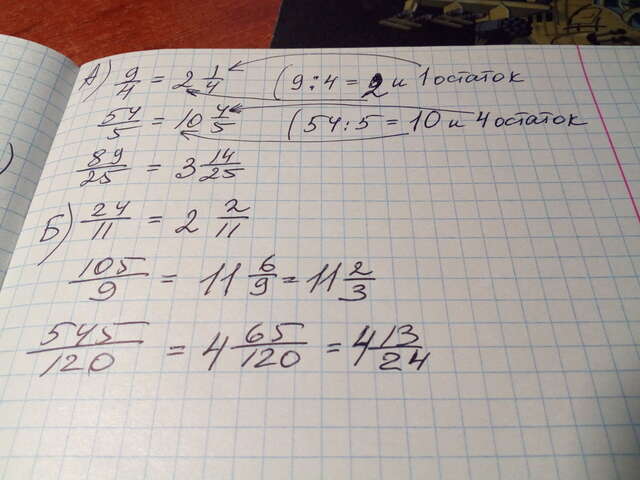 А) 9/4 = 2 1/4 (9:4 = 2 и 1 остаток
54/5 = 10 4/5 (54:5 = 10 и 4 остаток
89/25 = 3 14/25
Б) 24/11 = 2 2/11
105/9 = 11 6/9 = 11 2/3
545/120 = 4 65/120 = 4 13/24